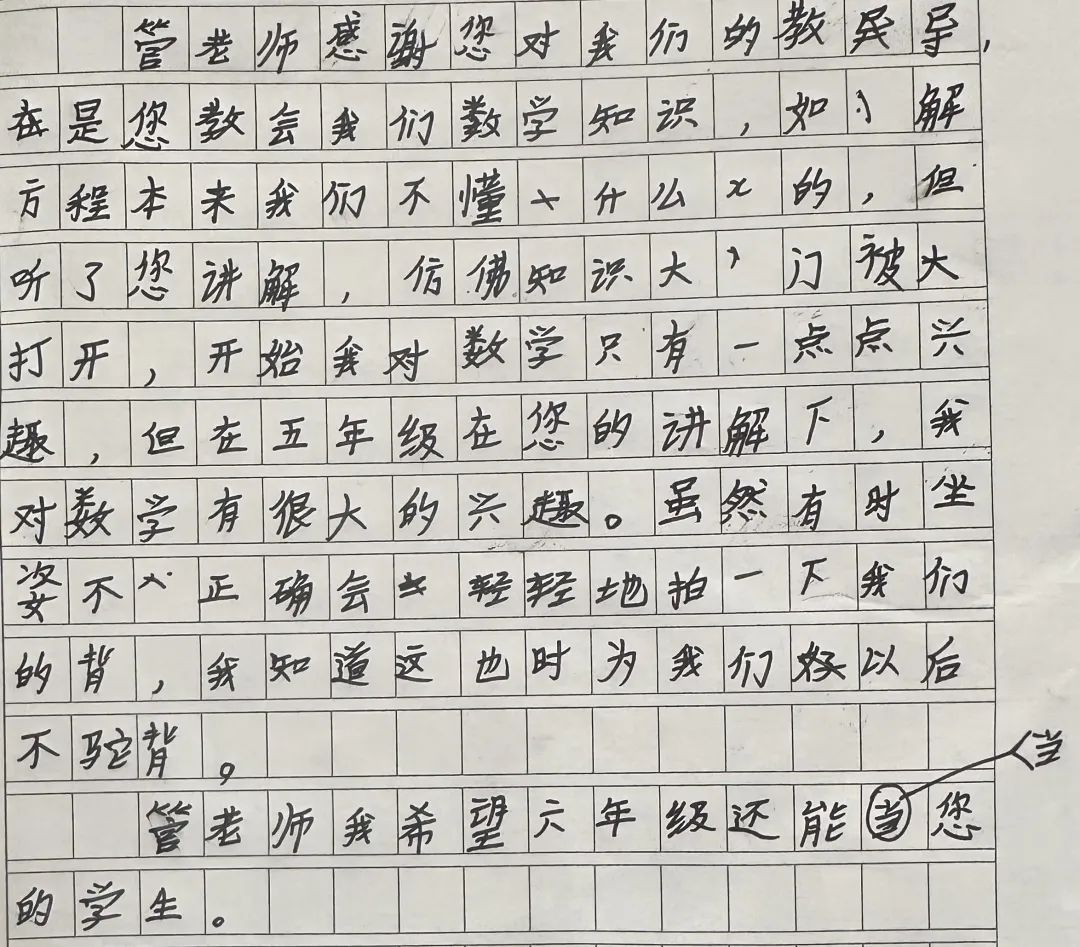 管老师感谢您对我们的教导,
是您教会我们数学知识,如解
方程本来我们不懂什么x的,但
听了您讲解,仿佛知识大门被大
打开,开始我对数学只有一点点兴
趣,但在五年级在您的讲解下,我
对数学有很大的兴趣。虽然有时坐
姿不正确会轻轻地拍一下我们
的背,我知道这也时为我们好以后
不驼背。
当
管老师我希望六年级还能当您
的学生。